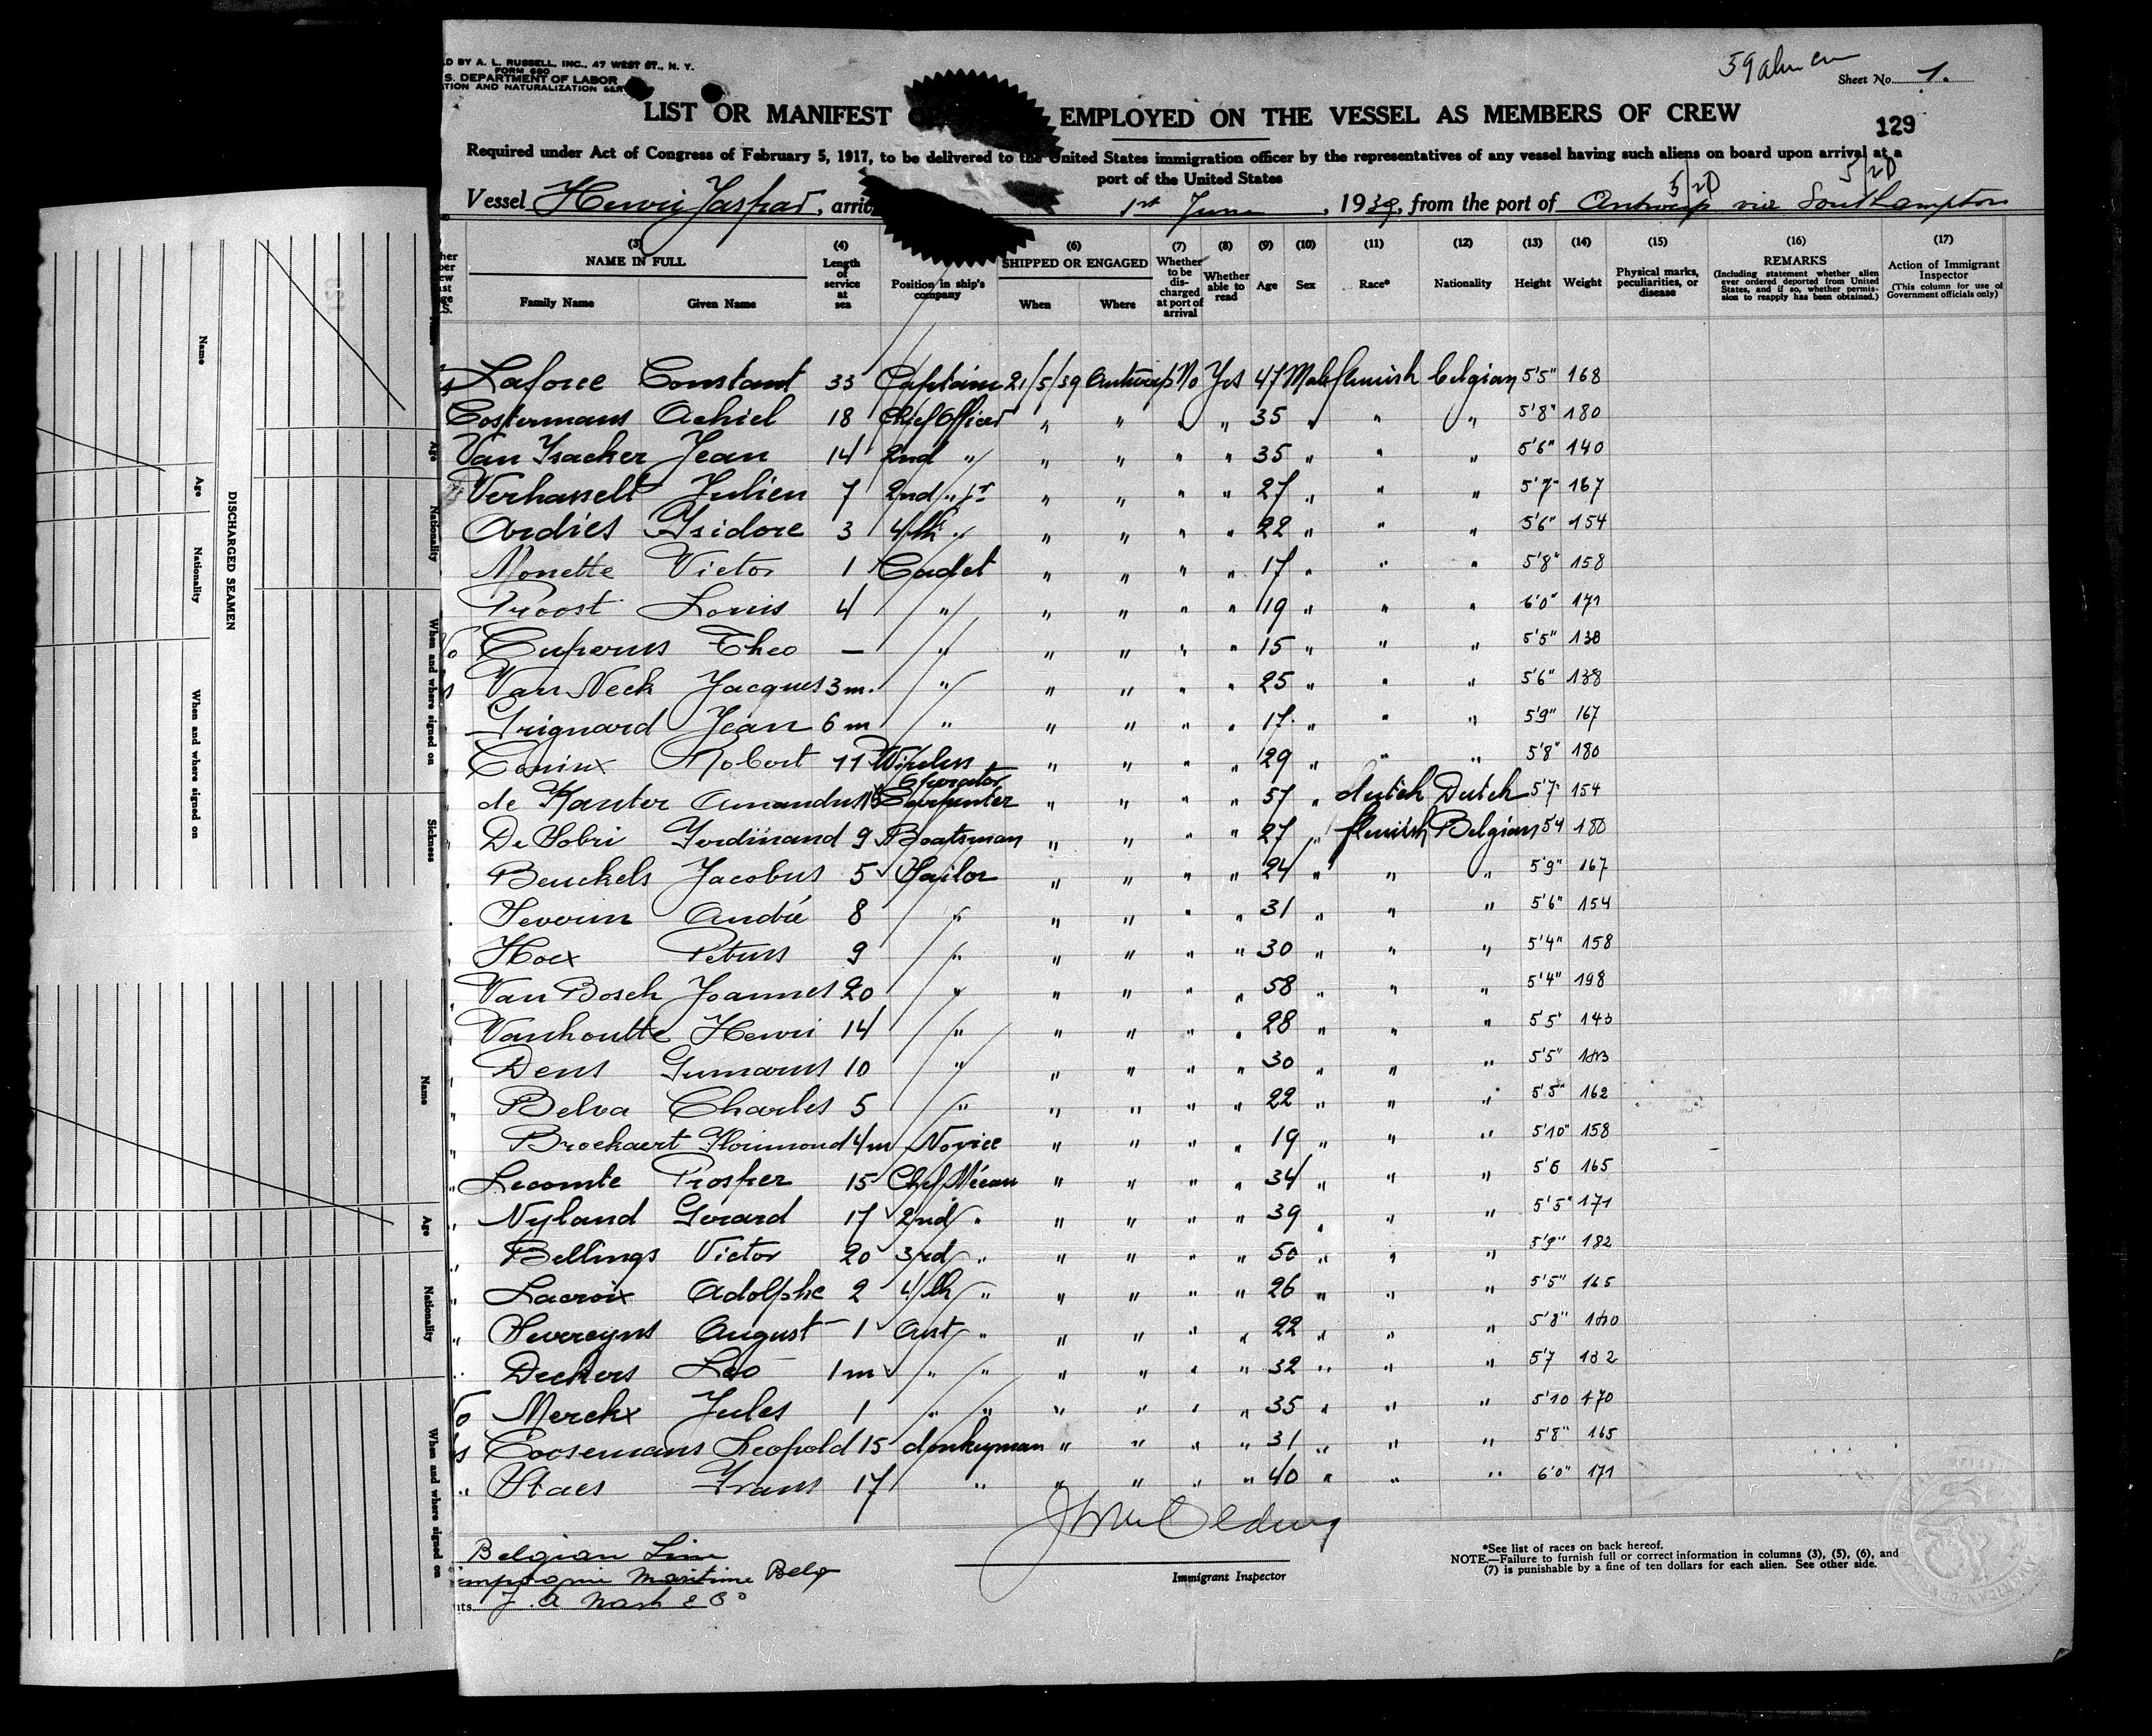 D BY A. L. RUSSELL, INC., 47 WEST ST., N. Y.
FORM 680
S. DEPARTMENT OF LABOR
TION AND NATURALIZATION SER
Sheet No. 1.
LIST OR MANIFEST EMPLOYED ON THE VESSEL AS MEMBERS OF CREW
129
Required under Act of Congress of February 5, 1917, to be delivered to the United States immigration officer by the representatives of any vessel having such aliens on board upon arrival at a
port of the United States
5/20 5/20
Vessel Henri Jaspar, arri 1st June, 1939, from the port of Antwerp via Southampton
(3) NAME IN FULL Family Name Given Name
(4) Length of service at sea
Position in ship's company
(6) SHIPPED OR ENGAGED When Where
(7) Whether to be discharged at port of arrival
(8) Whether able to read
(9) Age
(10) Sex
(11) Race*
(12) Nationality
(13) Height
(14) Weight
(15) Physical marks, peculiarities, or disease
(16) REMARKS (Including statement whether alien ever ordered deported from United States, and if so, whether permission to reapply has been obtained.)
(17) Action of Immigrant Inspector (This column for use of Government officials only)
Laforce Constant 33 Captain 21/5/39 Antwerp No Yes 47 Male flemish belgian 5'5" 168
Costermans Achiel 18 Chief Officer " " " " 35 " " " 5'8" 180
Van Isacker Jean 14 2nd " " " " " 35 " " " 5'6" 140
Verhasselt Julien 7 2nd " jr " " " " 27 " " " 5'7" 167
Ardies Isidore 3 4th " " " " " 22 " " " 5'6" 154
Monette Victor 1 Cadet " " " " 17 " " " 5'8" 158
Proost Louis 4 " " " " " 19 " " " 6'0" 171
Cuperus Theo — " " " " " 15 " " " 5'5" 138
Van Neck Jacques 3 m. " " " " " 25 " " " 5'6" 138
Grignard Jean 6 m " " " " " 17 " " " 5'9" 167
Coninx Robert 11 Wireless Operator " " " " 29 " " " 5'8" 180
de Kanter Amandus Carpenter " " " " 57 " dutch Dutch 5'7" 154
De Sobri Ferdinand 9 Boatsman " " " 27 " flemish Belgian 5'4 180
Beuckels Jacobus 5 Sailor " " " " 24 " " " 5'9" 167
Severin André 8 " " " " " 31 " " " 5'6" 154
Hoex Petrus 9 " " " " " 30 " " " 5'4" 158
Van Bosch Joannes 20 " " " " " 58 " " " 5'4" 198
Vanhoutte Henri 14 " " " " " 28 " " " 5'5" 143
Dens Gumarus 10 " " " " " 30 " " " 5'5"
Belva Charles 5 " " " " " 22 " " " 5'5" 162
Brockaert Florimond 4m Novice " " " " 19 " " " 5'10" 158
Lecomte Prosper 15 Chef Mécan " " " " 34 " " " 5'6 165
Nyland Gérard 17 2nd " " " " " 39 " " " 5'5" 171
Bellings Victor 20 3rd " " " " " 50 " " " 5'9" 182
Lacroix Adolphe 2 4th " " " " " 26 " " " 5'5" 165
Severeyns August 1 Asst " " " " " 22 " " " 5'8"
Deckers Leo 1m " " " " " " 32 " " " 5'7 132
Merckx Jules 1 " " " " " " 35 " " " 5'10 170
Coosemans Leopold 15 donkeyman " " " " 31 " " " 5'8" 165
Staes Frans 17 " " " " " 40 " " " 6'0" 171
Belgian Line
Maritime Belge
J. A Nash & Co
Immigrant Inspector
*See list of races on back hereof.
NOTE.—Failure to furnish full or correct information in columns (3), (5), (6), and
(7) is punishable by a fine of ten dollars for each alien. See other side.
DISCHARGED SEAMEN
Name
Age
Nationality
When and where signed on
Age
Nationality
When and where signed on
Sickness
Name
Age
Nationality
When and where signed on